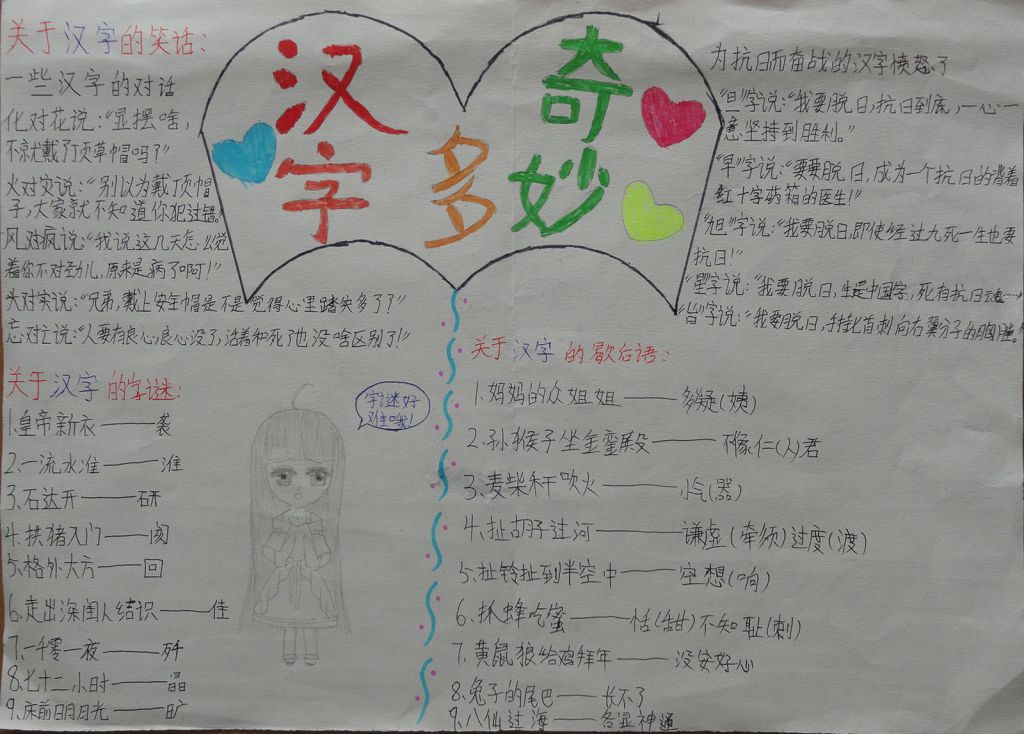 汉字
奇妙
多
关于汉字的笑话：
一些汉字的对话
化对花说：“显摆啥，
不就戴了顶草帽吗？”
火对灾说：“别以为戴顶帽
子，大家就不知道你犯过错。
风对疯说：“我说这几天怎么觉
着你不对劲儿，原来是病了啊！”
头对实说：“兄弟，戴上安全帽是不是觉得心里踏实多了？”
忘对亡说：“人要有良心，良心没了，活着和死了也没啥区别了！”
为抗日而奋战的汉字愤怒了
“旦”字说：“我要脱日，抗日到底，一心一
意坚持到胜利。”
“早”字说：“要要脱日，成为一个抗日的背着
红十字药箱的医生！”
“旭”字说：“我要脱日，即使经过九死一生也要
抗日！”
“星”字说：“我要脱日，生是中国字，死有抗日魂……”
“旨”字说：“我要脱日，手持匕首刺向右翼分子的胸膛。
关于汉字的字谜：
1.皇帝新衣——袭
2.一流水准——淮
3.石达开——研
4.拱猪入门——阂
5.格外大方——回
6.走出深闺人结识——佳
7.一千零一夜——歼
8.七十二小时——晶
9.床前明月光——旷
字谜好
难哦！
关于汉字的歇后语：
1.妈妈的众姐姐——多疑（姨）
2.孙猴子坐金銮殿——不像仁（人）君
3.麦柴秆吹火——小气（器）
4.扯胡子过河——谦虚（牵须）过度（渡）
5.扯铃扯到半空中——空想（响）
6.抓蜂吃蜜——恬（甜）不知耻（刺）
7.黄鼠狼给鸡拜年——没安好心
8.兔子的尾巴——长不了
9.八仙过海——各显神通